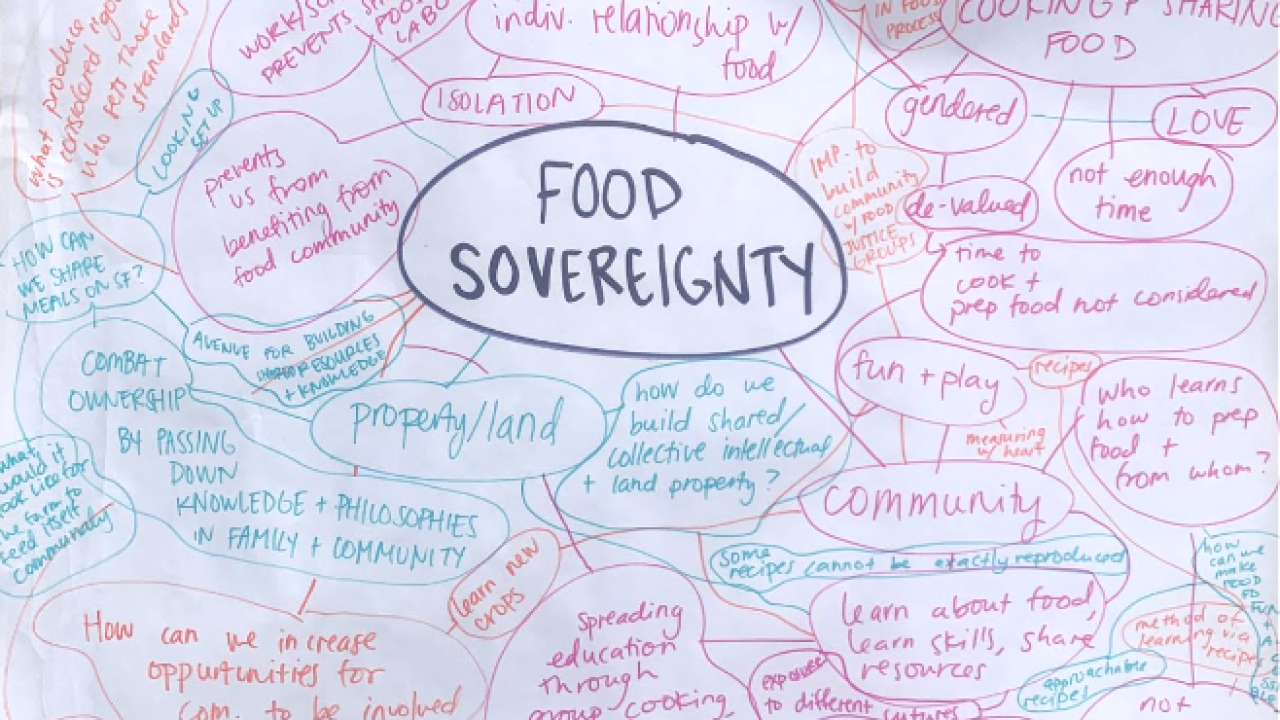 what produce
is considered
who sets those
standards
COOKING
SETUP
PREVENTS
indiv. relationship w/
food
ISOLATION
IN FOOD
PROCESS
COOKING + SHARING
FOOD
gendered
LOVE
not enough
time
de-valued
time to
cook +
prep food not considered
IMP. to
build
community
w/ FOOD
JUSTICE
GROUPS
prevents
us from
benefiting from
food community
FOOD
SOVEREIGNTY
HOW CAN
WE SHARE
MEALS ON SF?
AVENUE FOR BUILDING
RESOURCES
+ KNOWLEDGE
COMBAT
OWNERSHIP
BY PASSING
DOWN
KNOWLEDGE + PHILOSOPHIES
IN FAMILY + COMMUNITY
property/land
how do we
build shared/
collective intellectual
+ land property?
fun + play
recipes
measuring
w/ heart
who learns
how to prep
food +
from whom?
community
some
recipes cannot be exactly reproduced
what
would it
look like for
the farm to
feed itself
community
learn new
crops
How can we increase
oppurtunities for
com. to be involved
Spreading
education
through
group cooking,
learn about food,
learn skills, share
resources
exposure
to different cultures
approachable
recipes
method of
learning via
recipes
how
can we
make
FOOD
not